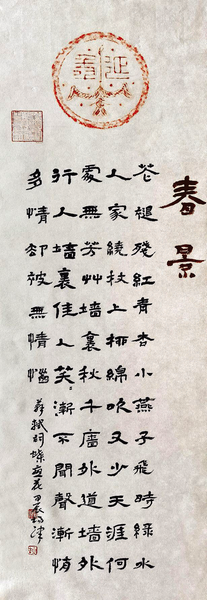 延年
春景
花褪殘紅青杏小燕子飛時綠水
人家繞枝上柳綿吹又少天涯何
處無芳艸墻裏秋千廧外道墻外
行人墻裏佳人笑漸不聞聲漸悄
多情卻被無情惱
蘇軾詞蝶戀花甲辰津